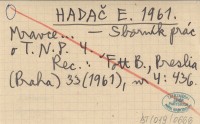 O HADAČ E. 1961.
Mravce... — Sborník prác
o T.N.P. 4.
Rec.: Fott B., Preslia
(Praha) 33 (1961), nr 4: 436.